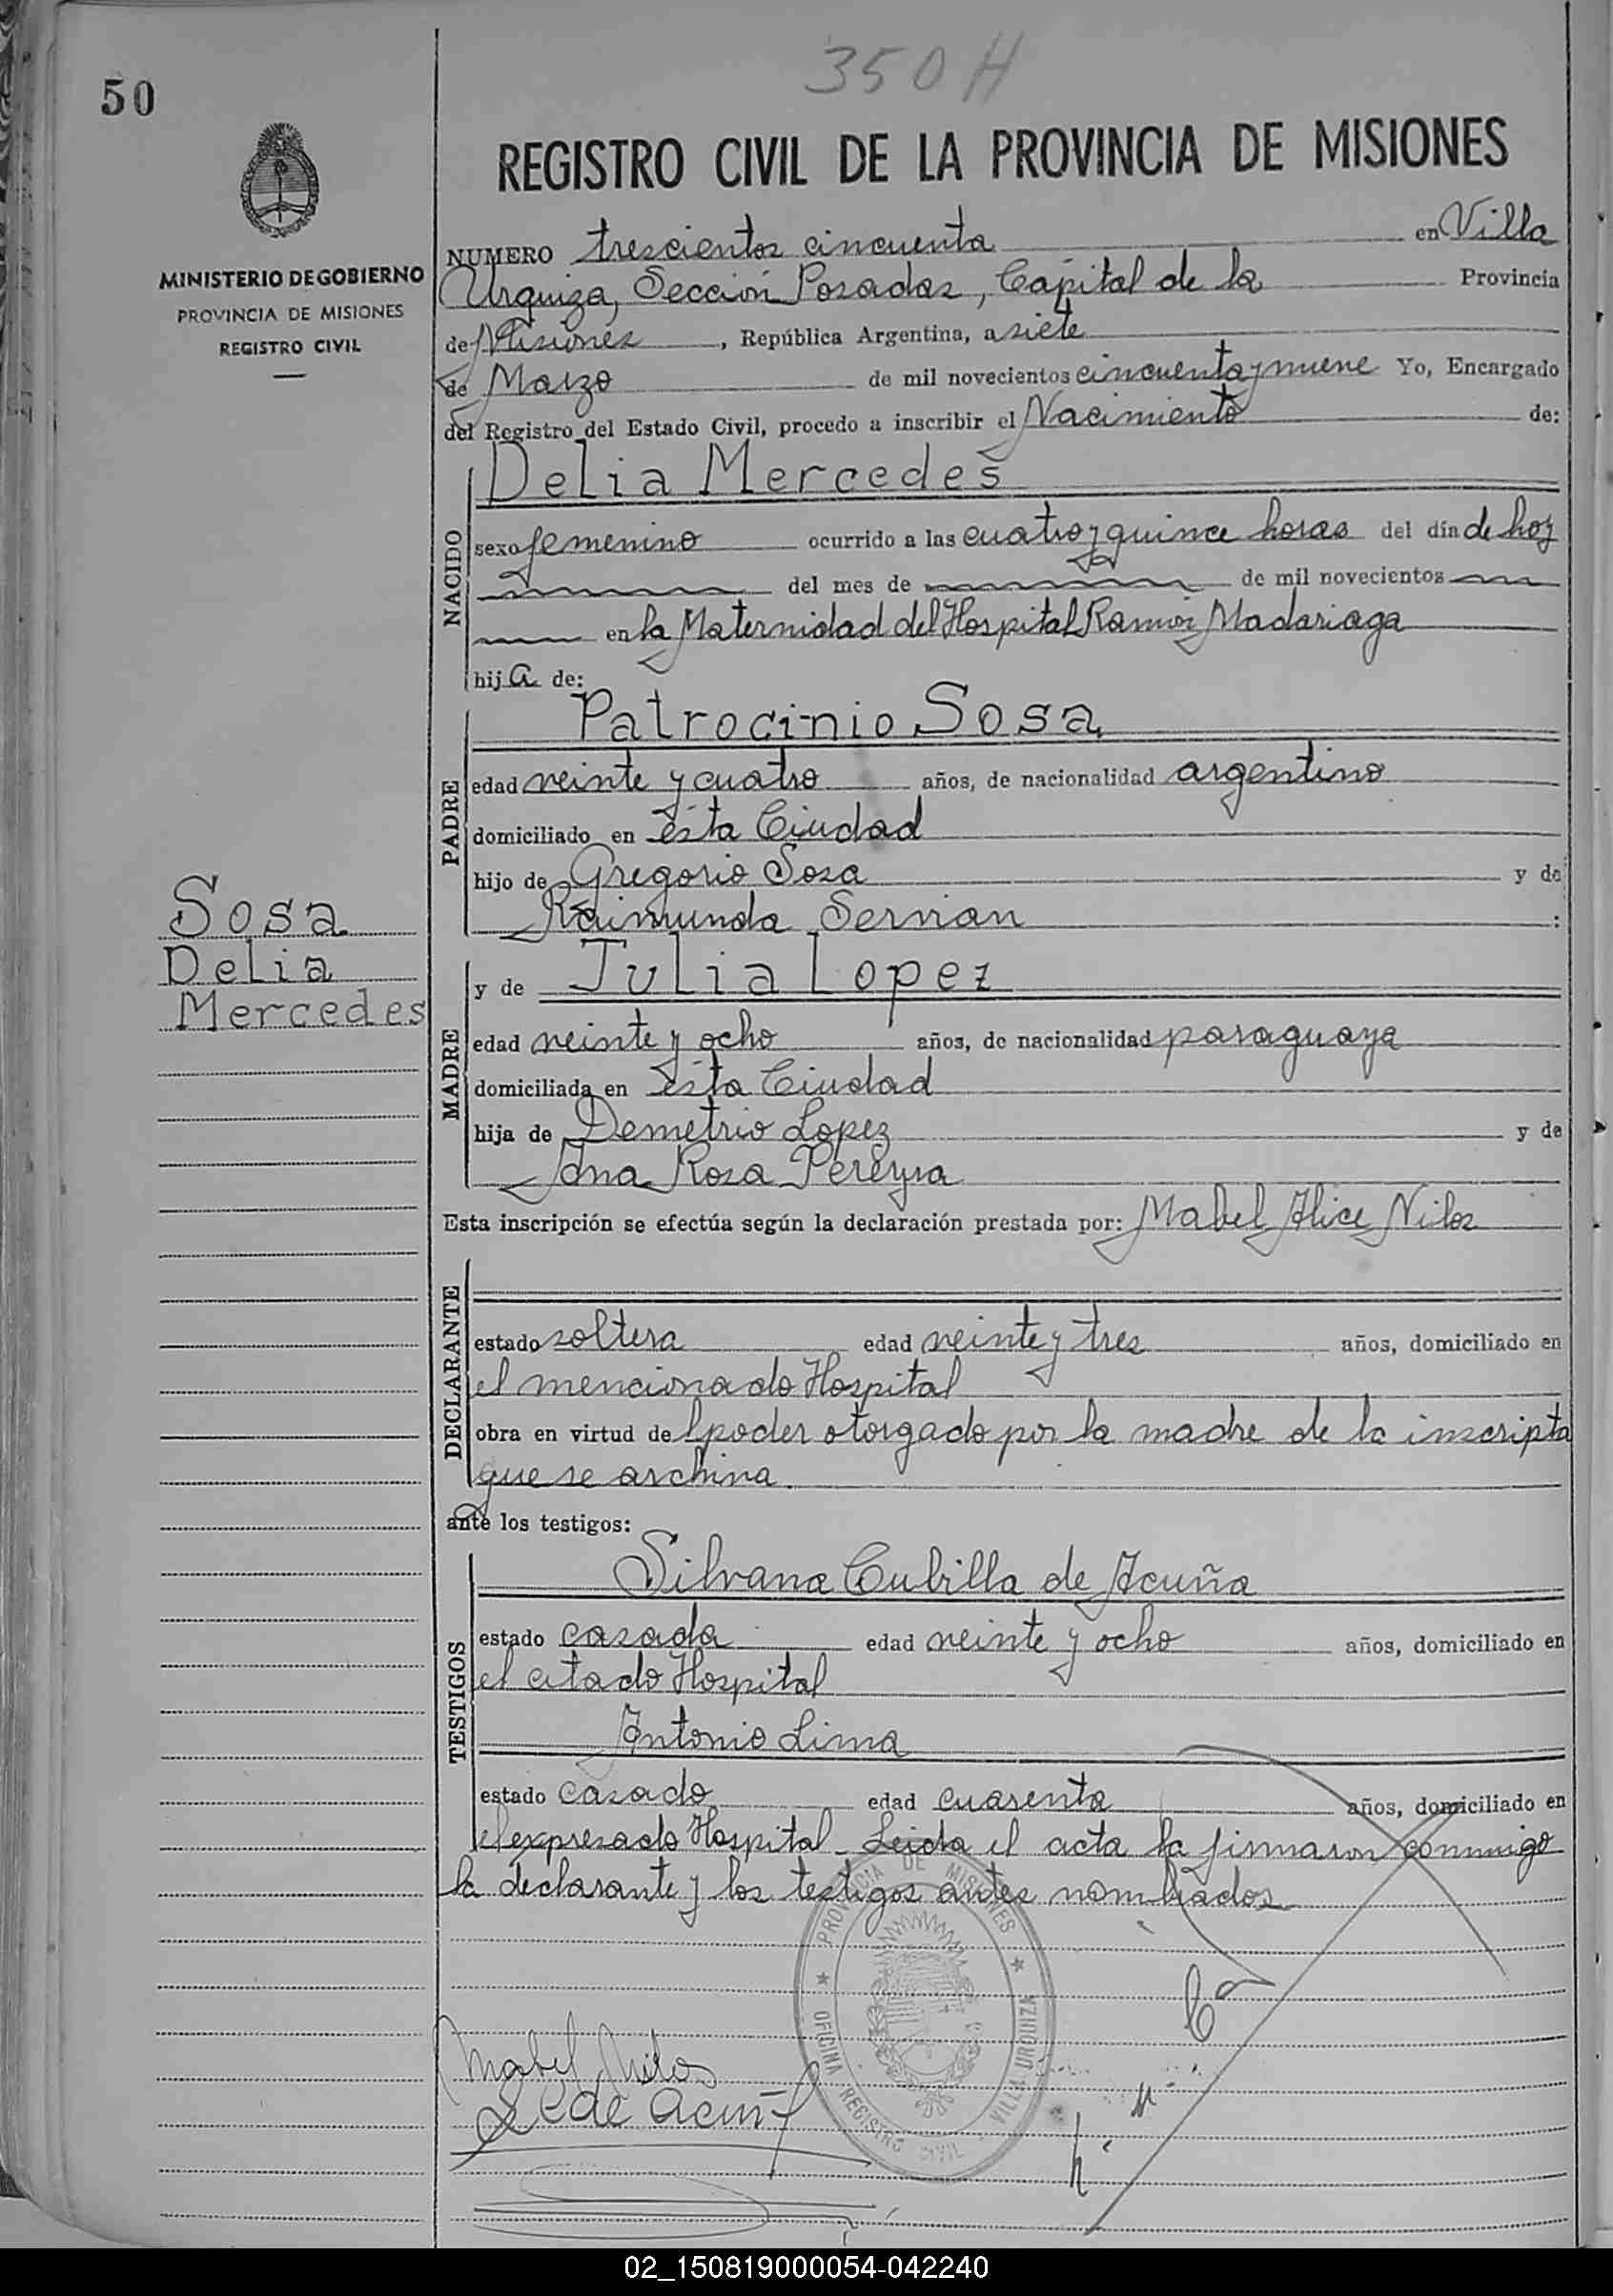 350 H
50
REGISTRO CIVIL DE LA PROVINCIA DE MISIONES
MINISTERIO DE GOBIERNO
PROVINCIA DE MISIONES
REGISTRO CIVIL
NUMERO trescientos cincuenta en Villa
Urquiza, Sección Posadas, Capital de la Provincia
de Misiones, República Argentina, a siete
de Marzo de mil novecientos cincuenta y nueve Yo, Encargado
del Registro del Estado Civil, procedo a inscribir el Nacimiento de:
NACIDO
Delia Mercedes
sexo femenino ocurrido a las cuatro y quince horas del día de hoy
del mes de de mil novecientos
en la Maternidad del Hospital Ramón Madariaga
hija de:
PADRE
Patrocinio Sosa
edad veinte y cuatro años, de nacionalidad argentino
domiciliado en ésta Ciudad
hijo de Gregorio Sosa y de
Raimunda Servian :
Sosa
Delia
Mercedes
MADRE
y de Julia Lopez
edad veinte y ocho años, de nacionalidad paraguaya
domiciliada en ésta Ciudad
hija de Demetrio Lopez y de
Ana Rosa Pereyra
Esta inscripción se efectúa según la declaración prestada por: Mabel Alice Nilos
DECLARANTE
estado soltera edad veinte y tres años, domiciliado en
el mencionado Hospital
obra en virtud del poder otorgado por la madre de la inscripta
que se archiva.
ante los testigos:
TESTIGOS
Silvana Cubilla de Acuña
estado casada edad veinte y ocho años, domiciliado en
el citado Hospital
Antonio Lima
estado casado edad cuarenta años, domiciliado en
el expresado Hospital. Leida el acta la firmaron conmigo
la declarante y los testigos antes nombrados
PROVINCIA DE MISIONES
OFICINA REGISTRO CIVIL - VILLA URQUIZA
Mabel Nilos
S C de Acuña
02_150819000054-042240